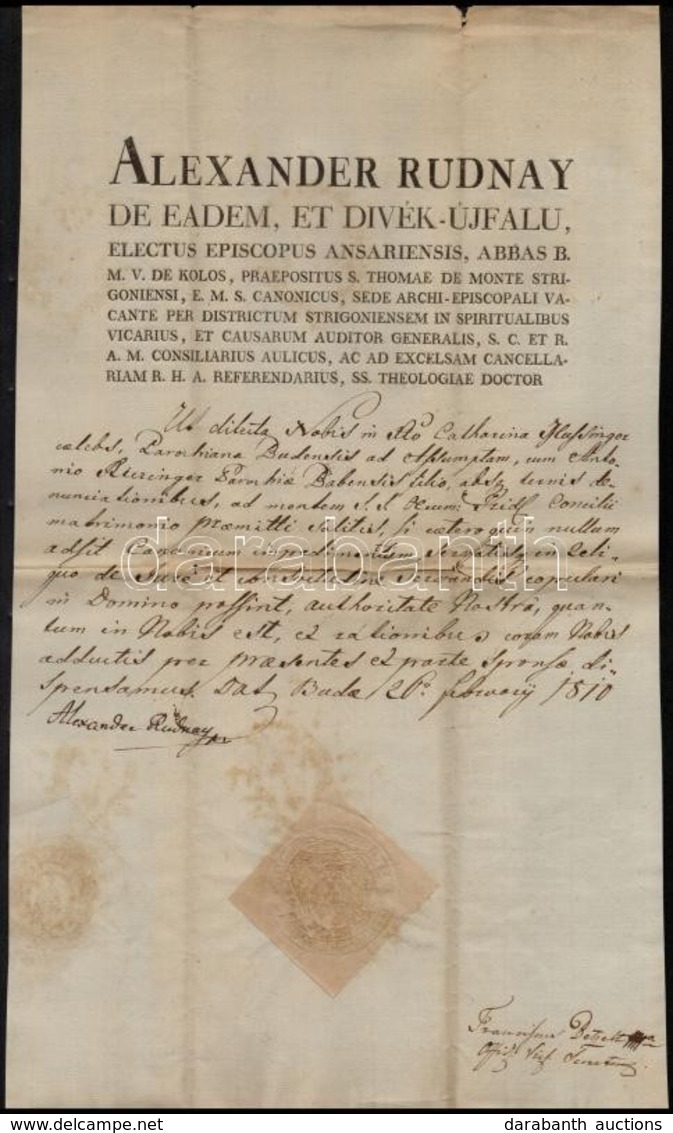 ALEXANDER RUDNAY
DE EADEM, ET DIVÉK-ÚJFALU,
ELECTUS EPISCOPUS ANSARIENSIS, ABBAS B.
M. V. DE KOLOS, PRAEPOSITUS S. THOMAE DE MONTE STRI-
GONIENSI, E. M. S. CANONICUS, SEDE ARCHI-EPISCOPALI VA-
CANTE PER DISTRICTUM STRIGONIENSEM IN SPIRITUALIBUS
VICARIUS, ET CAUSARUM AUDITOR GENERALIS, S. C. ET R.
A. M. CONSILIARIUS AULICUS, AC AD EXCELSAM CANCELLA-
RIAM R. H. A. REFERENDARIUS, SS. THEOLOGIAE DOCTOR
Ut dilecta Nobis in Xto Catharina
caelebs, Parochiana Budensis ad Assumptam, cum Anto-
nio Parochiae Babensis filio, absq ternis de
nunciationibus, ad mentem S. S. Oecum: Trid Concilii
matrimonio praemitti solitis, si caeteroquin nullum
adsit Canonicum impedimentum servatisq in reli-
quo de jure et consvetudine servandis copulari
in Domino possint, authoritate Nostrâ, quan-
tum in Nobis est, ex rationibus coram Nobis
adductis per praesentes ex parte sponsae di-
spensamus. Dat Budae 26a february 1810
Alexander Rudnay
Franciscus
darabanth
darabanth auctions
delcampe.net